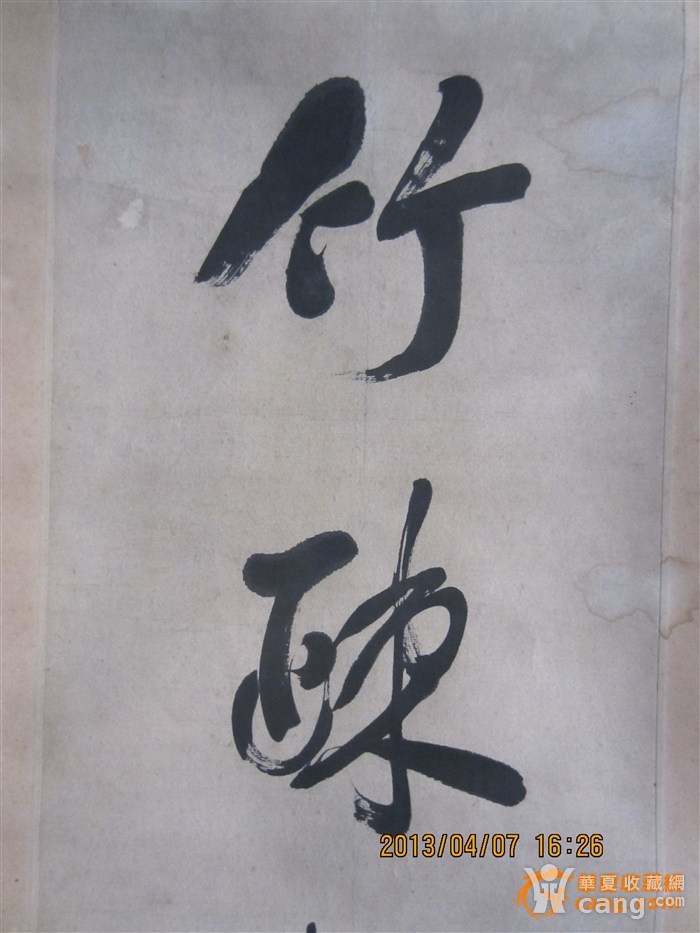 竹
疎
2013/04/07 16:26
華夏收藏網
cang.com